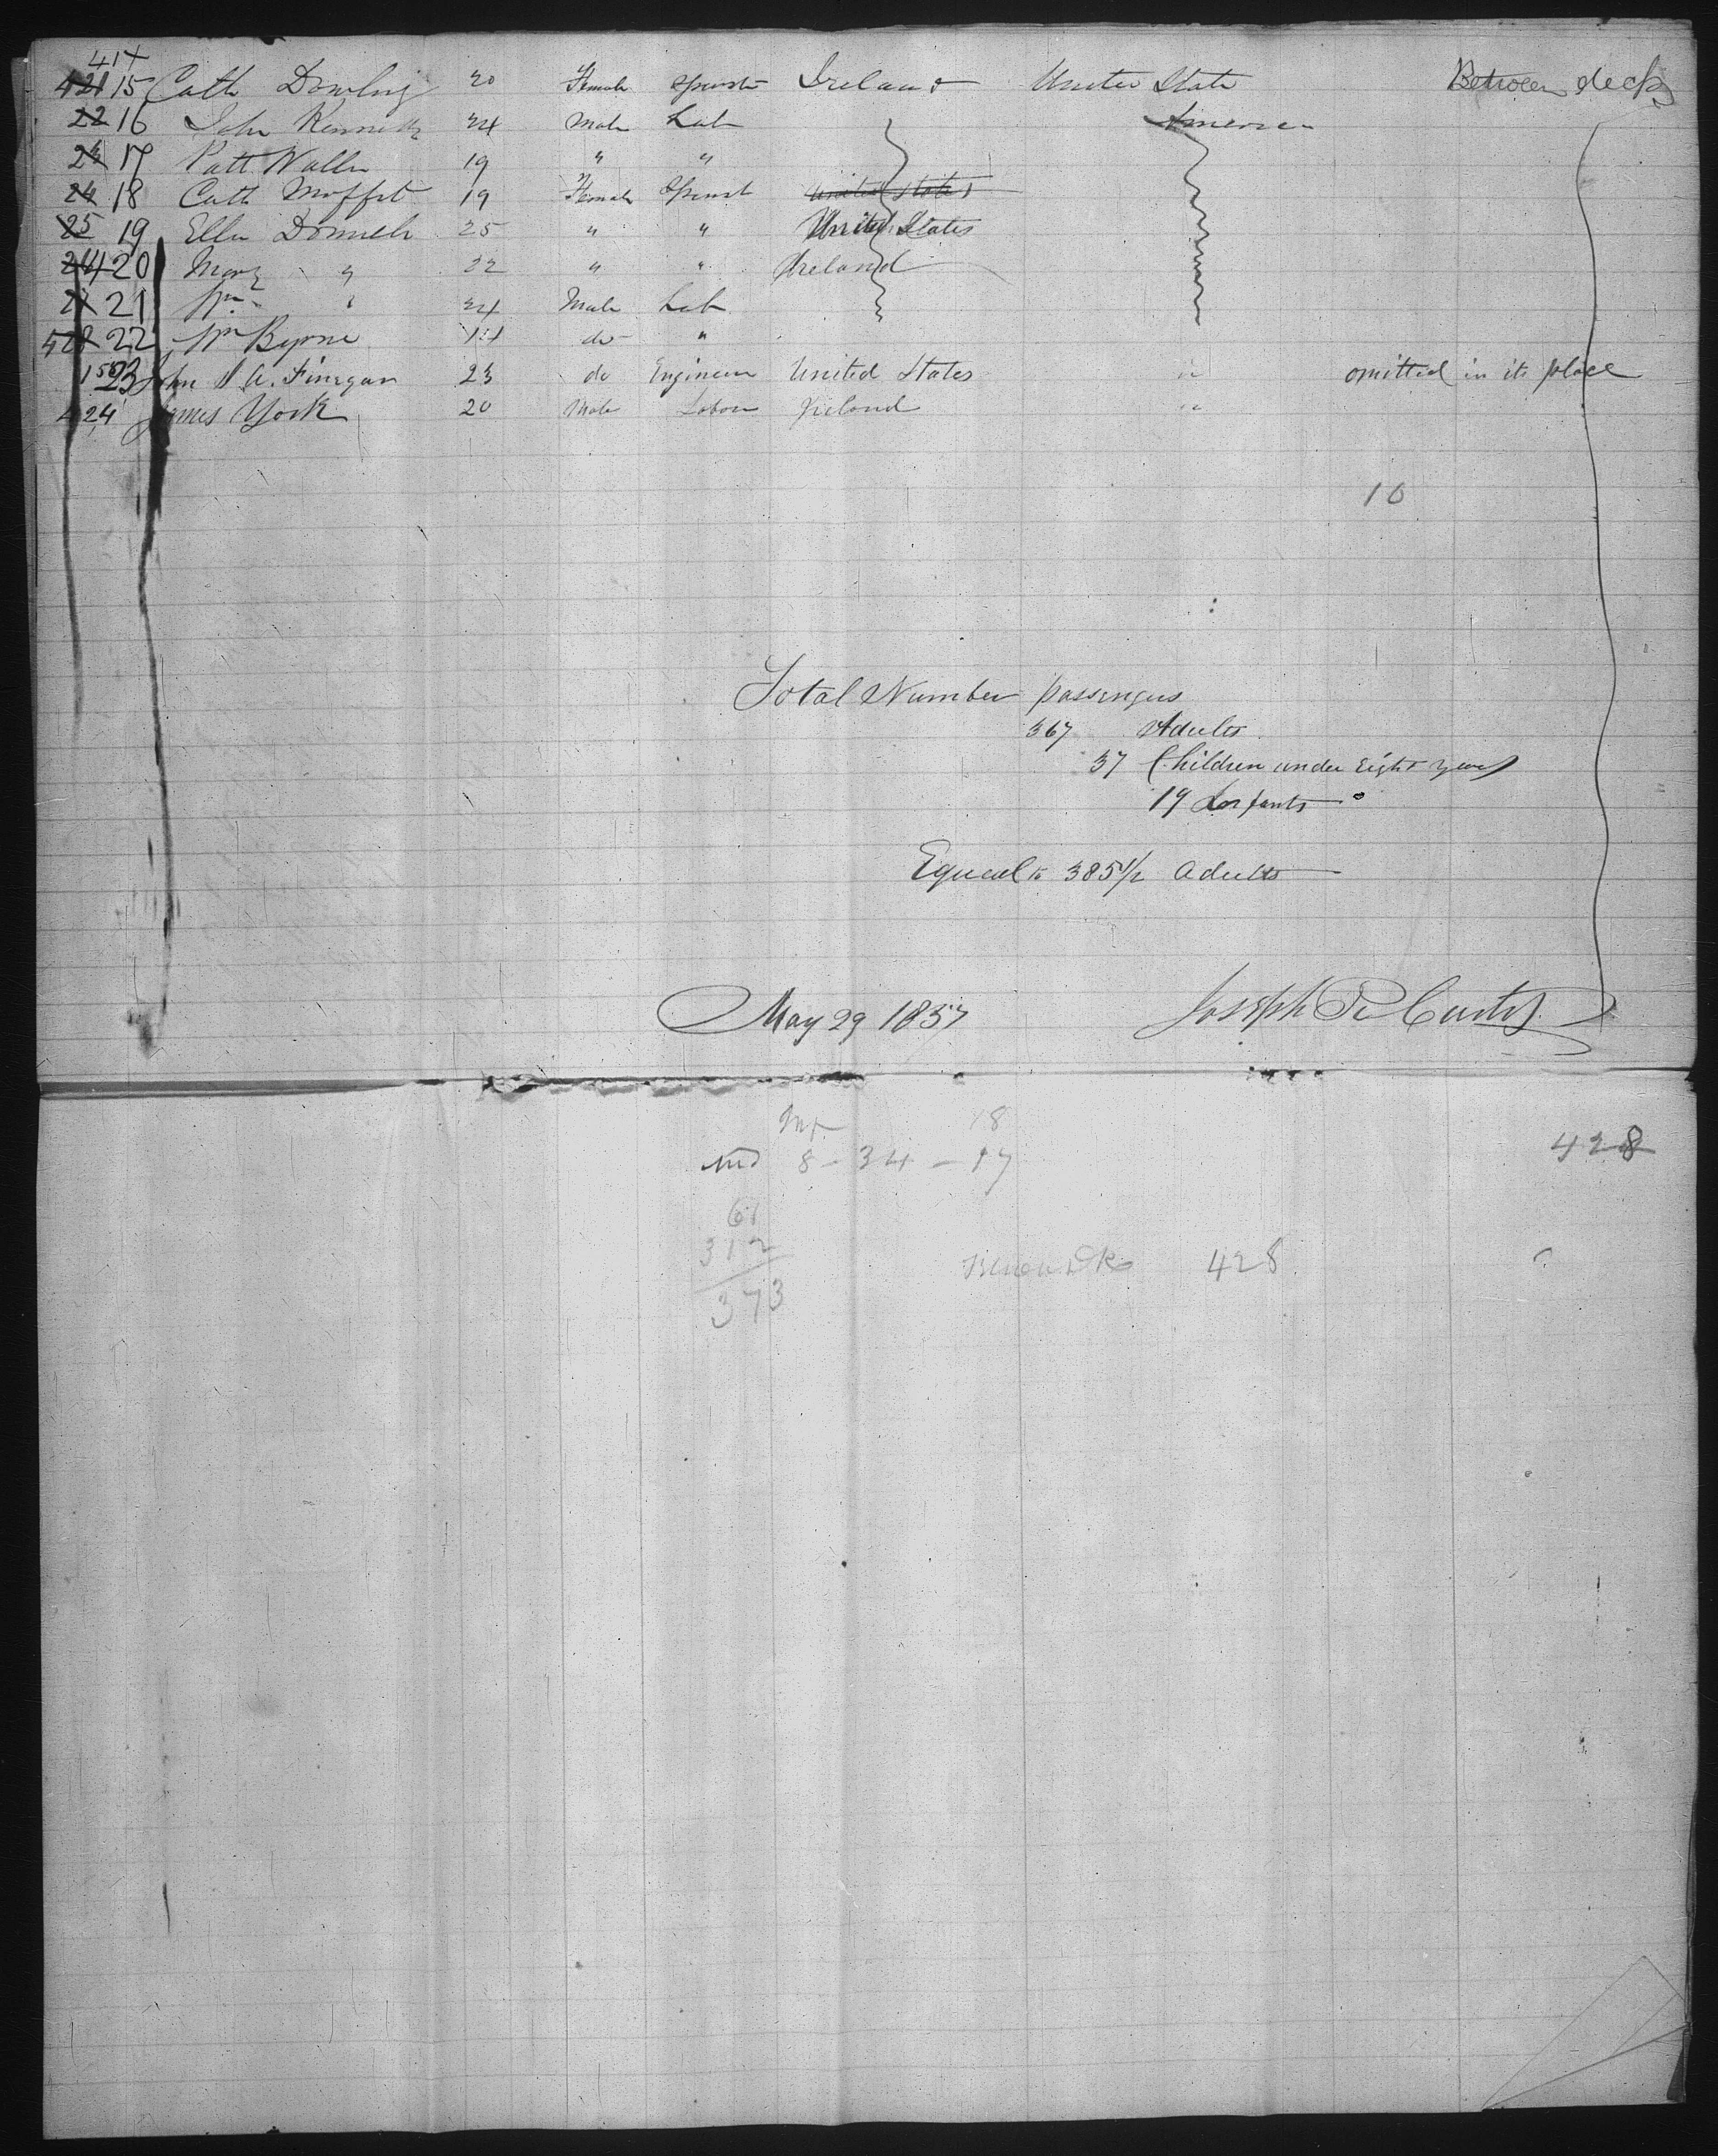 41
421 15 Cath Dowling 20 Female Spinster Ireland United State Between decks
22 16 John Kennedy 24 Male Lab America
23 17 Patt 19 " "
24 18 Cath Moffet 19 Female Spinst United States
25 19 Ellen Donnell 25 " " United States
20 Mary " 22 " " Ireland
21 Wm " 24 Male Lab
428 22 Wm Byrne 14 do "
23 John A. Finegan 23 do Engineer United States " omitted in its place
24 James York 20 Male Labour Ireland "
10
Total Number passengers
367 Adults
37 Children under Eight years
19 Infants
Equal to 385 1/2 Adults
May 29 1857 Joseph R Curtis
18
8 - 34 - 17
428
61
312
373
428